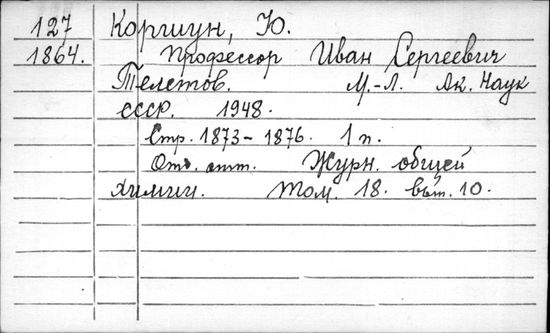 127 Коршун, Ю.
1864. Профессор Иван Сергеевич
Телетов. М.-Л. Ак. Наук
СССР. 1948.
Стр. 1873-1876. 1 п.
Отд. отт. Журн. общей
химии. Том. 18. вып. 10.